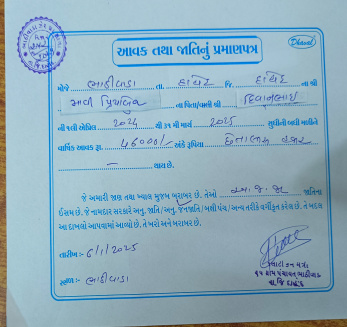 આવક તથા જાતિનું પ્રમાણપત્ર
Dhaval
મોજે ભાઠીવાડા તા. દાહોદ જિ. દાહોદ ના શ્રી
ના પિતા/વાલી શ્રી
ની ૧લી એપ્રિલ 2024 થી ૩૧ મી માર્ચ 2025 સુધીની બધી મળીને
વાર્ષિક આવક રૂા. 46000/- અંકે રૂપિયા
— થાય છે.
જે અમારી જાણ તથા ખ્યાલ મુજબ બરાબર છે. તેઓ અ.જ.જા જાતિના
ઈસમ છે. જે નામદાર સરકારે અનુ. જાતિ / અનુ. જનજાતિ / બક્ષી પંચ / અન્ય તરીકે વર્ગીકૃત કરેલ છે. તે બદલ
આ દાખલો આપવામાં આવ્યો છે. તે ખરો અને બરાબર છે.
તારીખ :- 6/1/2025
સ્થળ :- ભાઠીવાડા